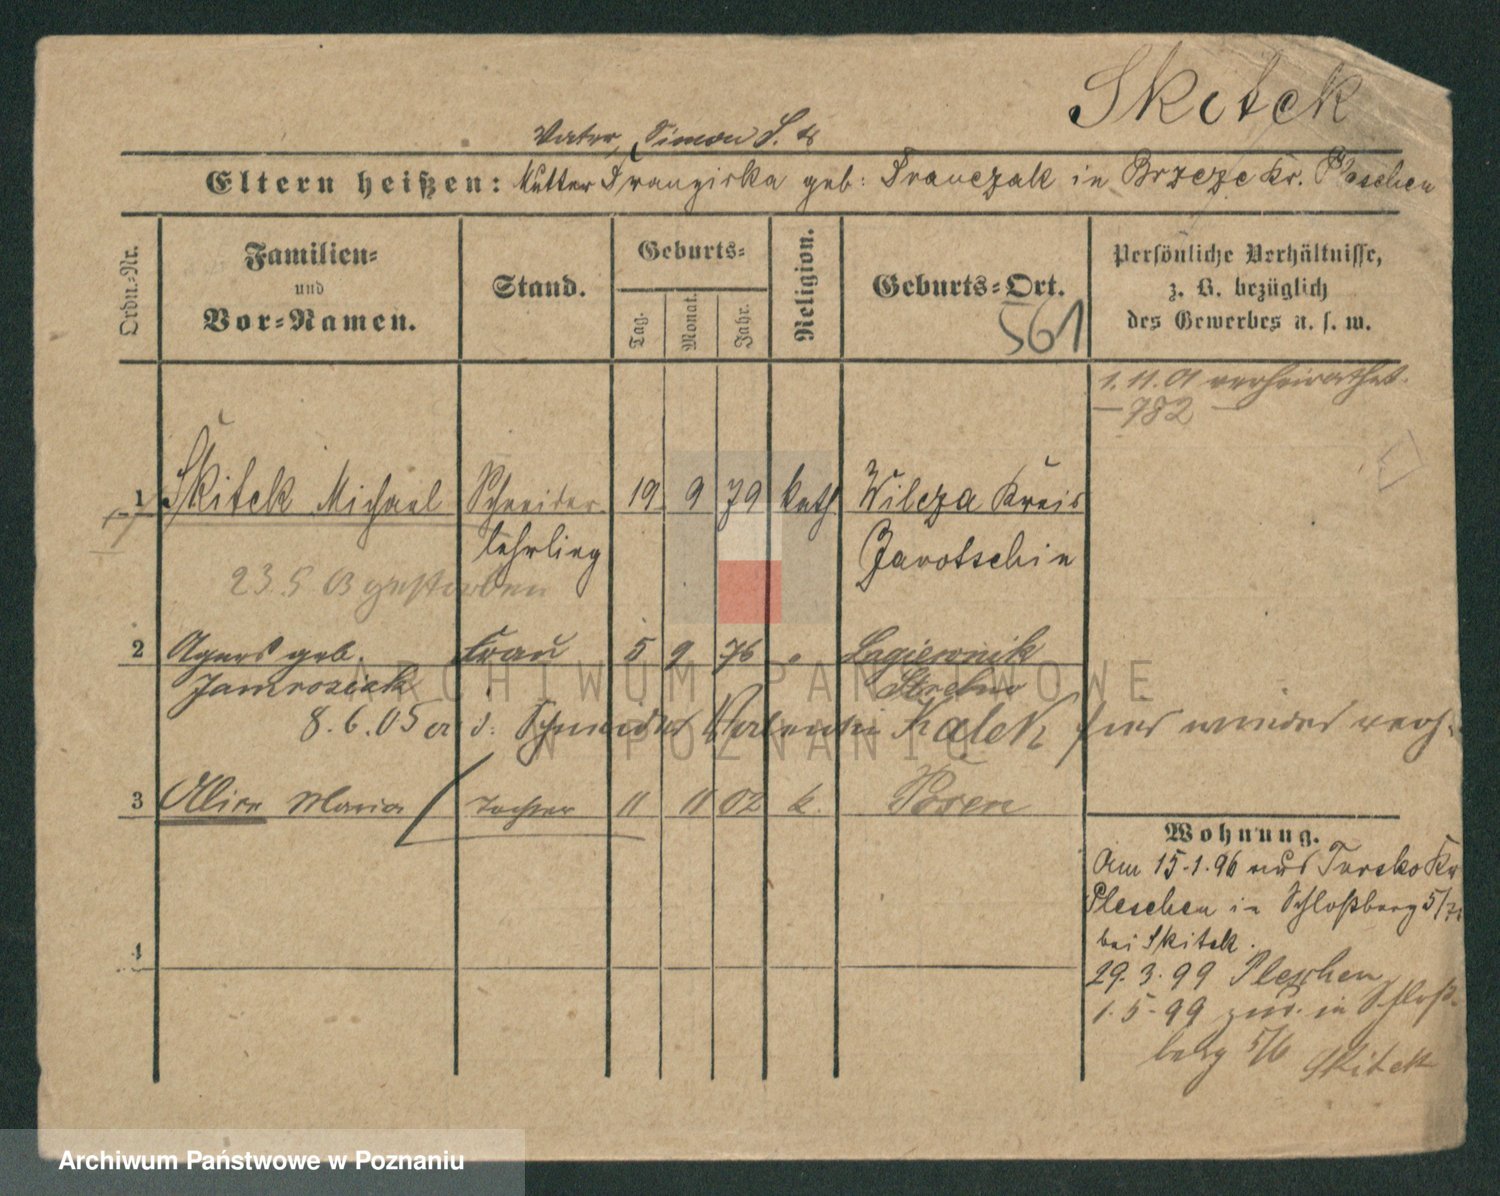 Skitek
Vater, Simon S. &
Eltern heißen: Mutter Franziska geb: Franczak in Brzezie Kr. Pleschen
Ordn.-Nr.
Familien-
und
Vor-Namen.
Stand.
Geburts-
Tag.
Monat.
Jahr.
Religion.
Geburts-Ort.
561
Persönliche Verhältnisse,
z. B. bezüglich
des Gewerbes u. s. w.
1. 11. 01 verheirathet.
— 782 —
1 Skitek Michael Schneider 19 9 79 kath Wilcza Kreis
lehrling Jarotschin
23. 5 03 gestorben
2 Agnes geb. Frau 5 9 76 " Lagiewnik
Jamroziak Strelno
8. 6. 05 Schneider Kalek hier wieder verh.
3 Maria Tochter 11 11 02 k. Posen
4
Wohnung.
Am 15.1.96 aus Tursko Kr
Pleschen in Schloßberg 5/
bei Skitek.
29. 3. 99 Pleschen
1. 5. 99 zur. in Schloß-
berg 5/6 Skitek
ARCHIWUM PAŃSTWOWE
W POZNANIU
Archiwum Państwowe w Poznaniu